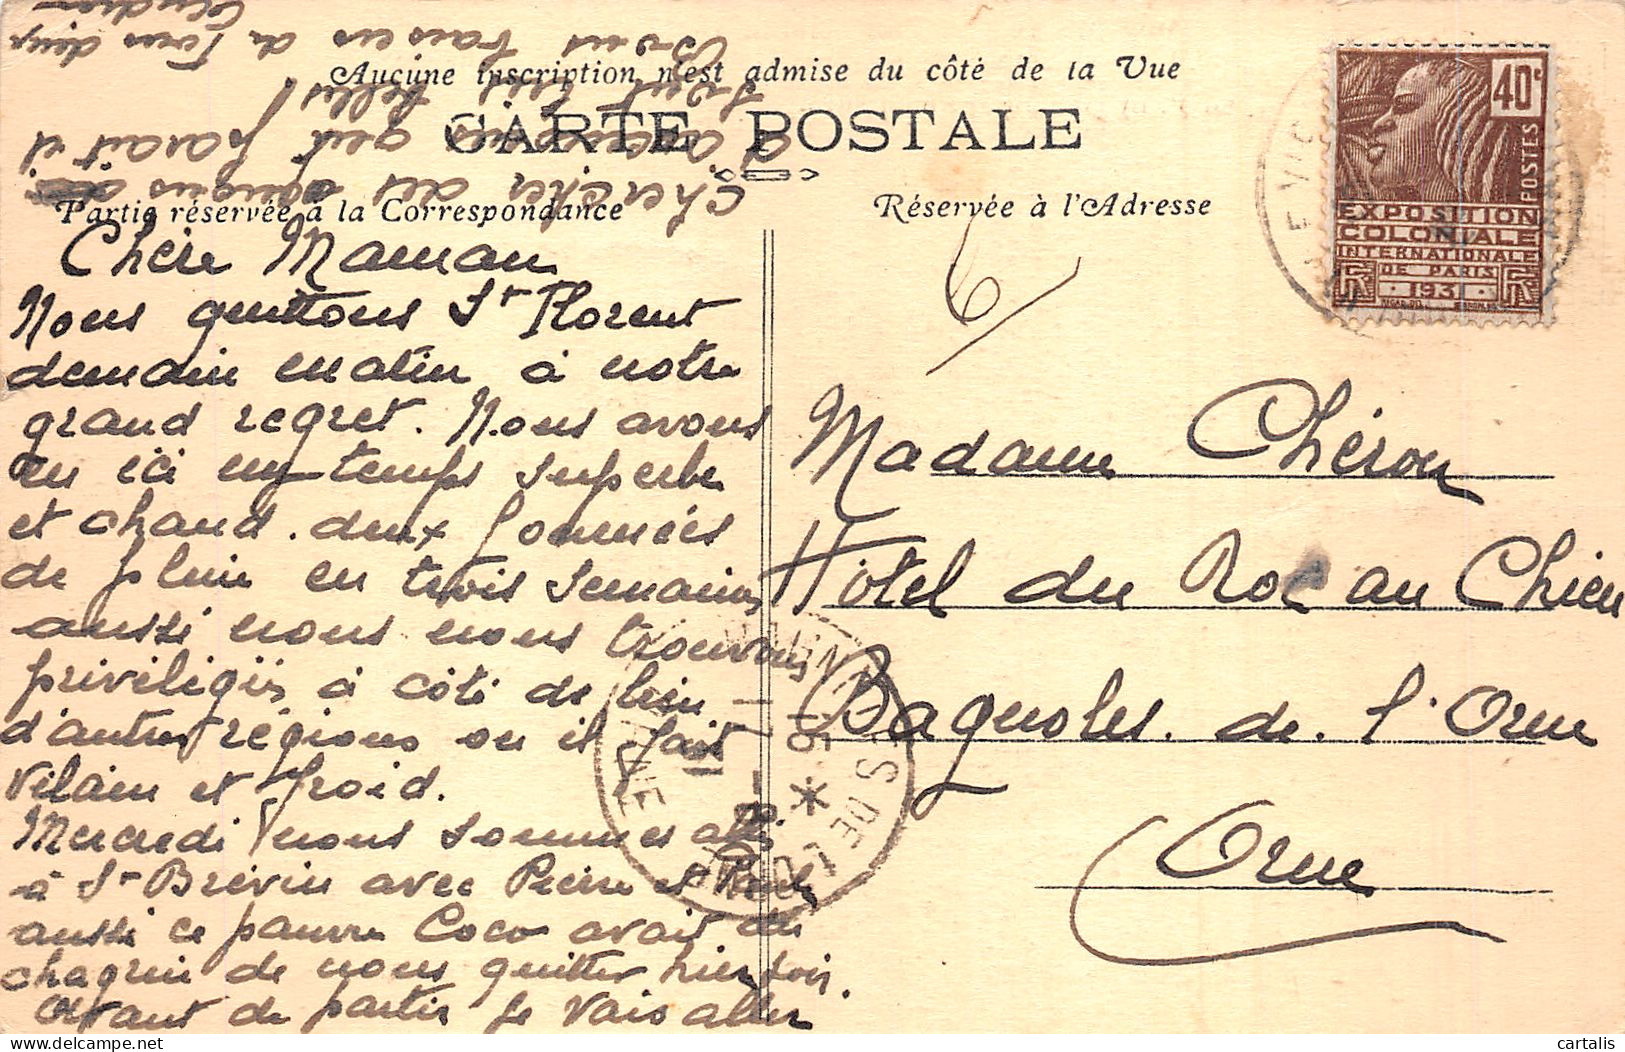 Aucune inscription n'est admise du côté de la Vue
CARTE POSTALE
Partie réservée à la Correspondance
Réservée à l'Adresse
40c
POSTES
EXPOSITION
COLONIALE
INTERNATIONALE
DE PARIS
1931
6
Chère Maman
Nous quittons St Florent
demain matin à notre
grand regret. Nous avons
eu ici un temps superbe
et chaud. deux journées
de pluie en trois semaines
aussi nous nous trouvons
privilégiés à côté de bien
d'autres régions ou il fait
vilain et froid.
Mercredi nous sommes allés
à St Brévin avec Pierre et
aussi ce pauvre Coco avait du
chagrin de nous quitter hier soir.
Avant de partir je vais aller
chercher des
qui parait il
sont très belles!
Bons baisers de tous deux
Madame Chéron
Hôtel du Roc au Chien
Bagnoles. de. l'Orne
Orne
cartalis